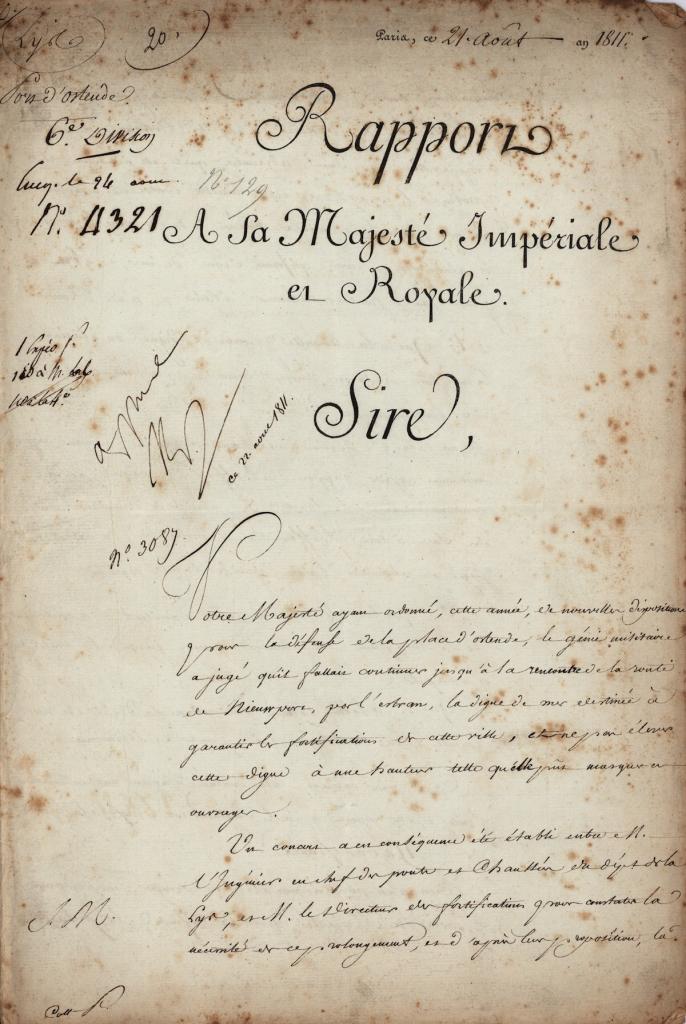 Lys
20.
Paris, ce 21. Août an 1811.
Port d'ostende.
6.e Division
Rapport
le 24 aout
N.o 129
N.o 4321
A Sa Majesté Impériale
et Royale.
1
Sire,
ce 22. aout 1811.
N.o 3087
Votre Majesté ayant ordonné, cette année, de nouvelles dispositions
pour la défense de la place d'ostende, le génie militaire
a jugé qu'il fallait continuer jusqu'à la rencontre de la route
de Nieuport, par l'estran, la digue de mer destinée à
garantir les fortifications de cette ville, et ne pas élever
cette digue à une hauteur telle qu'elle pût masquer ces
ouvrages.
Un concert a en conséquence été établi entre M.
l'Ingénieur en chef des ponts et Chaussées du dép.t de la
Lys, et M. le Directeur des fortifications pour constater la
nécessité de ce prolongement, et d'après leur proposition, la